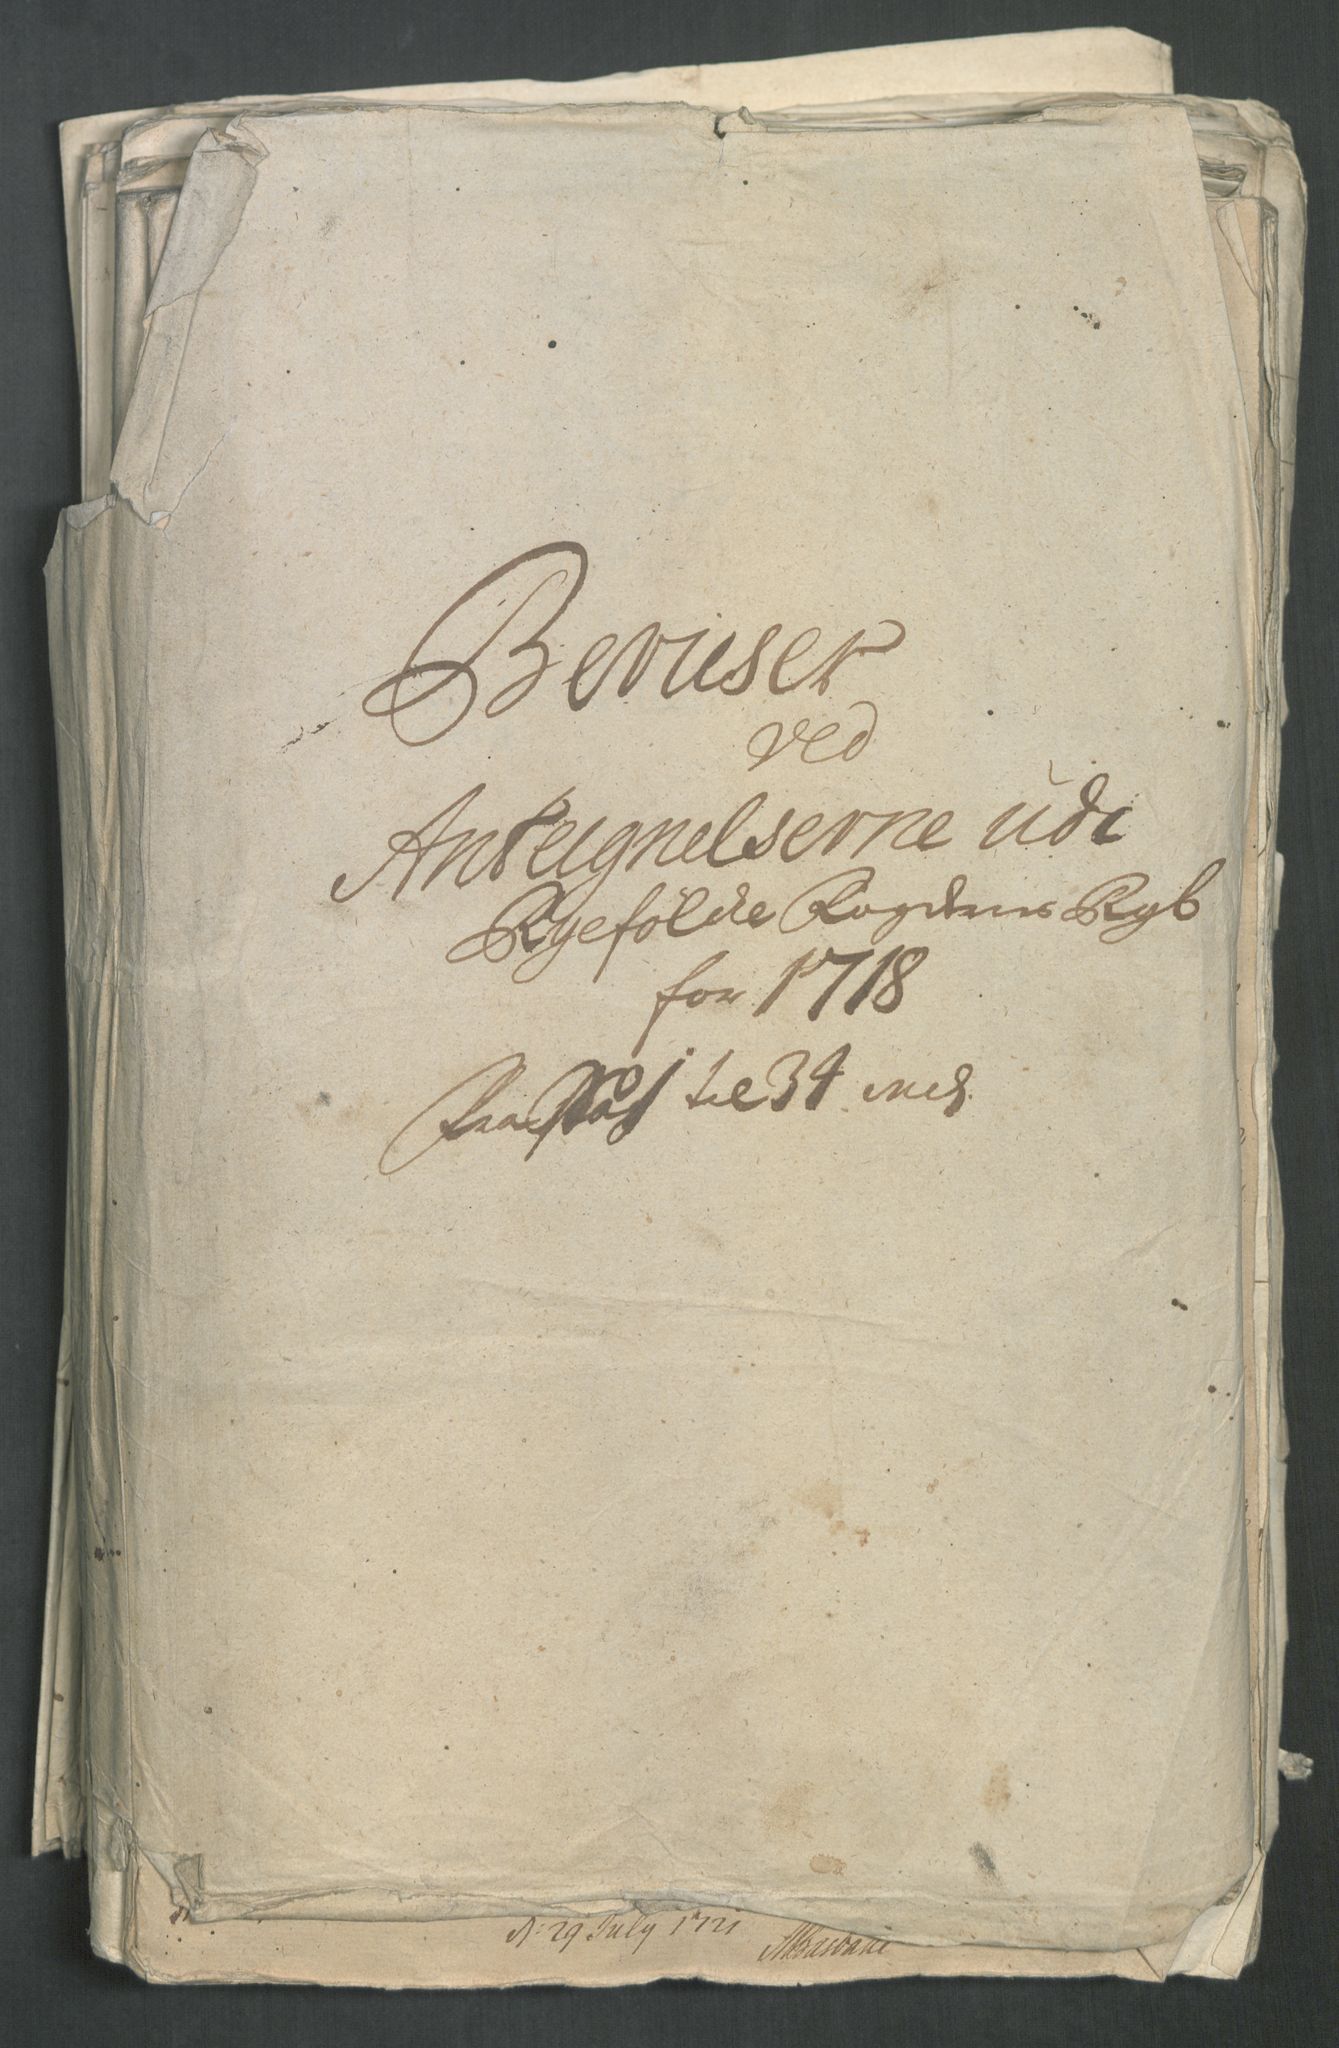 Beviser
ved
Antegnelserne udi
Ryefölche Fogderies Rgb
for 1718
Fra No 1 til 34 incl.
d: 29 July 1721